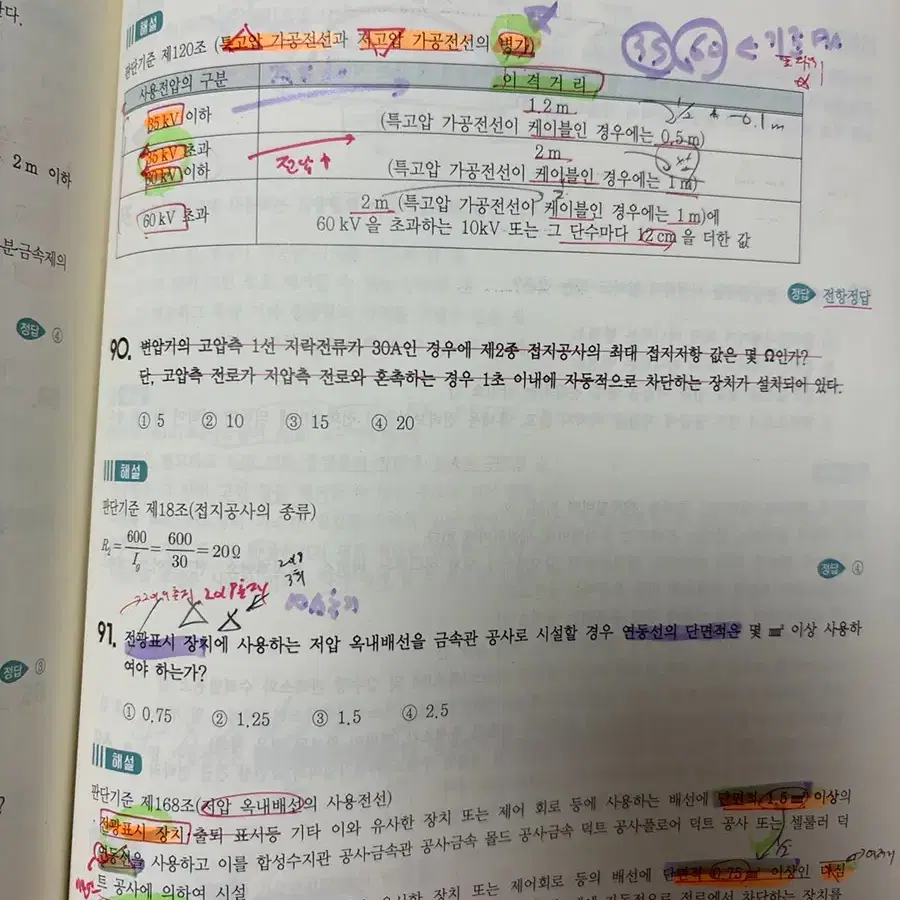 해설
판단기준 제120조 (특고압 가공전선과 저고압 가공전선의 병가)
35 60
사용전압의 구분 이 격 거 리
35 kV 이하
1.2 m
(특고압 가공전선이 케이블인 경우에는 0.5 m)
35 kV 초과
60 kV 이하
전압↑
2 m
(특고압 가공전선이 케이블인 경우에는 1 m)
60 kV 초과
2 m (특고압 가공전선이 케이블인 경우에는 1 m)에
60 kV 을 초과하는 10kV 또는 그 단수마다 12 cm 을 더한 값
정답 전항정답
2 m 이하
분·금속제의
정답 ④
90. 변압기의 고압측 1선 지락전류가 30A인 경우에 제2종 접지공사의 최대 접지저항 값은 몇 Ω인가?
단, 고압측 전로가 저압측 전로와 혼촉하는 경우 1초 이내에 자동적으로 차단하는 장치가 설치되어 있다.
① 5 ② 10 ③ 15 ④ 20
해설
판단기준 제18조(접지공사의 종류)
R₂ = 600/I_g = 600/30 = 20 Ω
정답 ④
91. 전광표시 장치에 사용하는 저압 옥내배선을 금속관 공사로 시설할 경우 연동선의 단면적은 몇 ㎟ 이상 사용하
여야 하는가?
정답 ③
① 0.75 ② 1.25 ③ 1.5 ④ 2.5
해설
판단기준 제168조(저압 옥내배선의 사용전선)
· 전광표시 장치, 출퇴 표시등 기타 이와 유사한 장치 또는 제어 회로 등에 사용하는 배선에 단면적 1.5 ㎟ 이상의
연동선을 사용하고 이를 합성수지관 공사·금속관 공사·금속 몰드 공사·금속 덕트 공사·플로어 덕트 공사 또는 셀룰러 덕
트 공사에 의하여 시설
유사한 장치 또는 제어회로 등의 배선에 단면적 0.75 ㎟ 이상인 다심